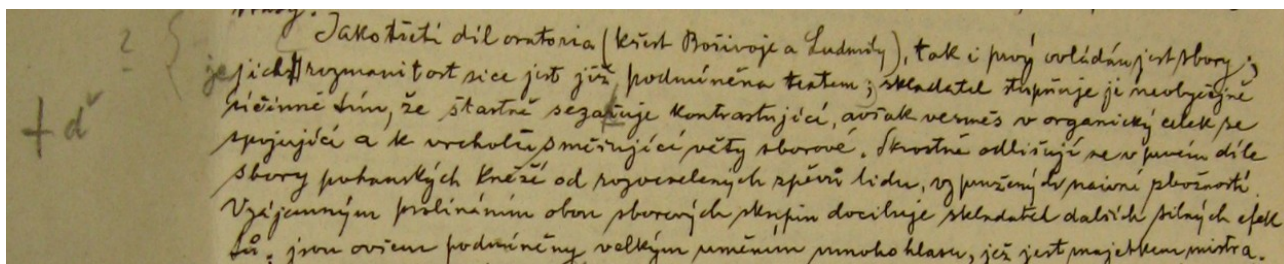 Jako třetí díl oratoria (křest Bořivoje a Ludmily), tak i prvý ovládán jest sbory;
jejich rozmanitost sice jest již podmíněna textem; skladatel stupňuje ji neobyčejně
účinně tím, že šťastně seřaďuje kontrastující, avšak vesměs v organický celek se
spojující a k vrcholu směřující věty sborové. Skvostně odlišují se v prvém díle
sbory pohanských kněží od rozveselených zpěvů lidu, vzpružených naivní zbožností.
Vzájemným prolínáním obou sborových skupin dociluje skladatel dalších silných efek
tů, jsou ovšem podmíněny velkým uměním mnohohlasu, jež jest majetkem mistra.
? 
+ď